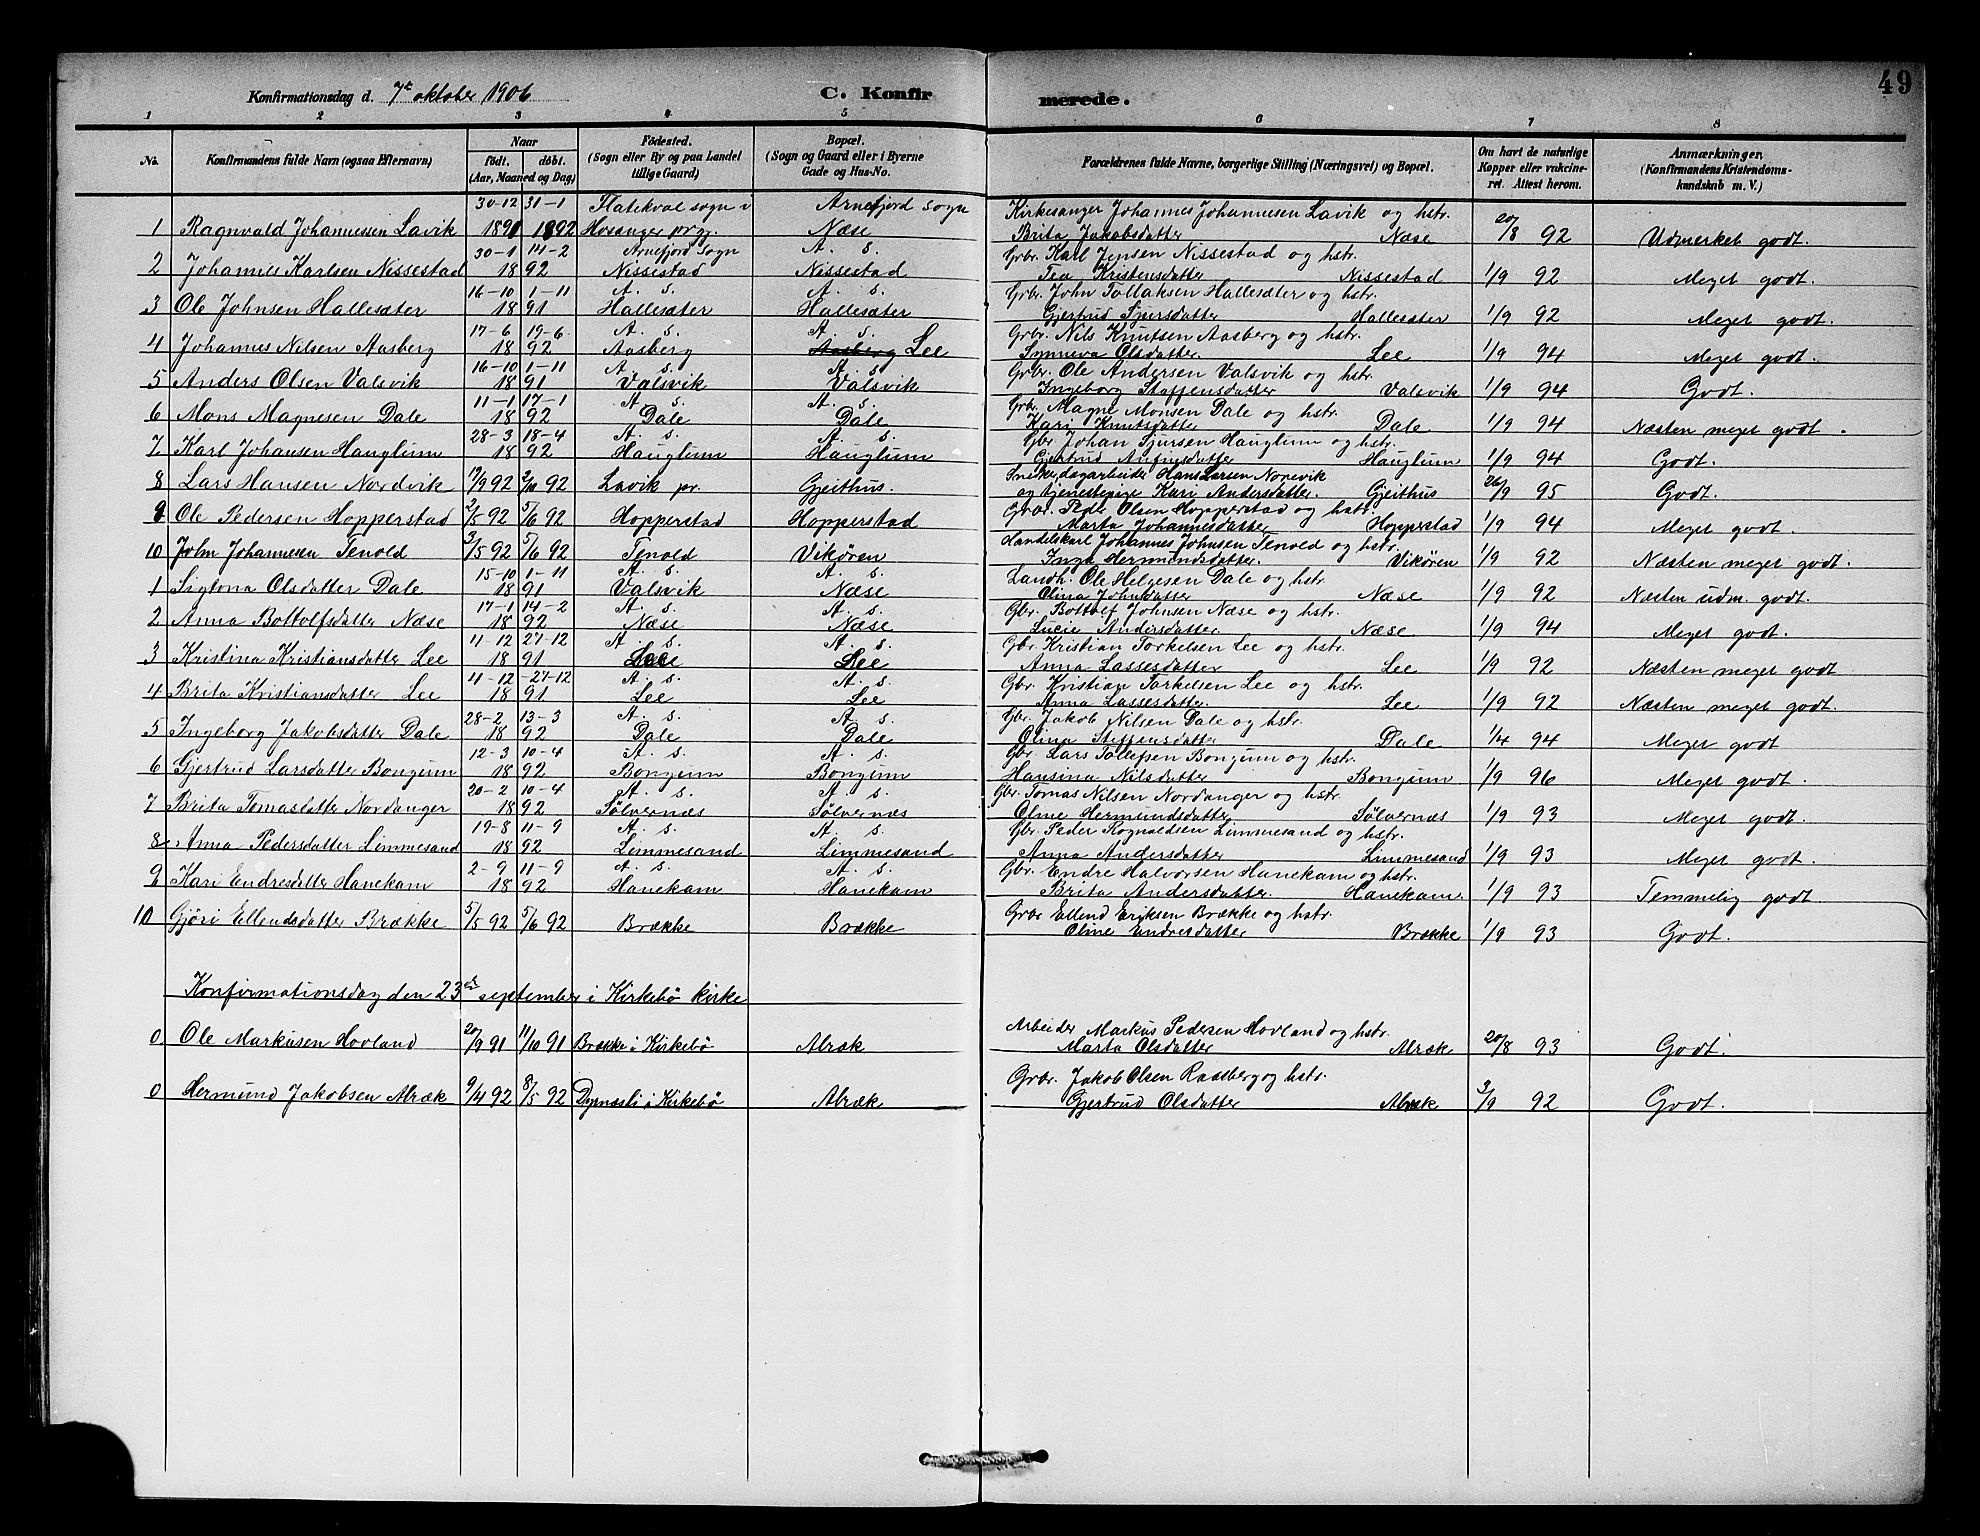 49
Konfirmationsdag d. 7de oktober 1906 C. Konfirmerede.
1 2 3 4 5 6 7 8
No. Konfirmandens fulde Navn (ogsaa Efternavn) Naar født. døbt. (Aar, Maaned og Dag) Fødested. (Sogn eller By og paa Landet tillige Gaard) Bopæl. (Sogn og Gaard eller i Byerne Gade og Hus-No. Forældrenes fulde Navne, borgerlige Stilling (Næringsvei) og Bopæl. Om havt de naturlige Kopper eller vakcineret. Attest herom. Anmærkninger. (Konfirmandens Kristendomskundskab m. V.)
30-12 31-1 Flatekval sogn i Arnefjord sogn Kirkesanger Johannes Johannesen Lavik og hstr.
1 Ragnvald Johannessen Lavik 1891 1892 Hosanger prgj. Næse Brita Jakobsdatter Næse 20/8 92 Udmerket godt.
30-1 14-2 Arnefjord Sogn A. s. Grbr. Karl Jensen Nissestad og hstr.
2 Johannes Karlsen Nissestad 18 92 Nissestad Nissestad Tea Kristensdatter Nissestad 1/9 92 Meget godt.
16-10 1-11 A. s. A. s. Grbr. John Tollaksen Hallesæter og hstr.
3 Ole Johnsen Hallesæter 18 91 Hallesæter Hallesæter Gjertrud Sjursdatter Hallesæter 1/9 92 Meget godt.
17-6 19-6 A. s. A. s. Grbr. Nils Knutsen Aasberg og hstr.
4 Johannes Nilsen Aasberg 18 92 Aasberg Aasberg Lee Synneva Olsdatter Lee 1/9 94 Meget godt.
16-10 1-11 A. s. A. s Grbr. Ole Andersen Valsvik og hstr.
5 Anders Olsen Valsvik 18 91 Valsvik Valsvik Ingeborg Staffensdatter Valsvik 1/9 94 Godt.
11-1 17-1 A. s. A. s. Grbr. Magne Monsen Dale og hstr.
6 Mons Magnesen Dale 18 92 Dale Dale Kari Knutsdatter Dale 1/9 94 Næsten meget godt.
28-3 18-4 A. s. A. s. Gbr Johan Sjursen Hauglum og hstr.
7 Karl Johansen Hauglum 18 92 Hauglum Hauglum Gjertrud Anfinsdatter Hauglum 1/9 94 Godt.
Snekker, dagarbeider Hans Larsen Nordvik
8 Lars Hansen Nordvik 17/9 92 2/10 92 Lavik pr. Gjeithus. og tjenestepige Kari Andersdatter. Gjeithus 26/9 95 Godt.
Grbr. Peder Olsen Hopperstad og hstr.
9 Ole Pedersen Hopperstad 2/5 92 5/6 92 Hopperstad Hopperstad Marta Johannesdatter Hopperstad 1/9 94 Meget godt.
Handelskarl Johannes Johnsen Tenold og hstr.
10 John Johannesen Tenold 3/5 92 5/6 92 Tenold Vikøren Inga Hermundsdatter. Vikøren 1/9 92 Næsten meget godt.
15-10 1-11 A. s. A. s. Landh. Ole Helgesen Dale og hstr.
1 Sigtona Olsdatter Dale 18 91 Valsvik Næse Olina Johnsdatter Næse 1/9 92 Næsten udm. godt.
17-1 14-2 A. s. A. s. Gbr. Bottolf Johnsen Næse og hstr.
2 Anna Bottolfsdatter Næse 18 92 Næse Næse Lucie Andersdatter. Næse 1/9 94 Meget godt.
11-12 27-12 A. s. A. s. Gbr. Kristian Torkelsen Lee og hstr.
3 Kristina Kristiansdatter Lee 18 91 Lee Lee Anna Lassesdatter Lee 1/9 92 Næsten meget godt
11-12 -27-12 A. s. A. s. Gbr. Kristian Torkelsen Lee og hstr.
4 Brita Kristiansdatter Lee 18 91 Lee Lee Anna Lassesdatter Lee 1/9 92 Næsten meget godt.
28-2 13-3 A. s. A s. Gbr. Jakob Nilsen Dale og hstr.
5 Ingeborg Jakobsdatter Dale 18 92 Dale Dale Olina Steffensdatter Dale 1/4 94 Meget godt
12-3 10-4 A. s. A. s. Gbr. Lars Tollefsen Bongum og hstr.
6 Gjertrud Larsdatter Bongum 18 92 Bongum Bongum Hansina Nilsdatter Bongum 1/9 96 Meget godt.
20-2 10-4 A. s. A. s. Gbr. Tomas Nilsen Nordanger og hstr.
7 Brita Tomasdatter Nordanger 18 92 Sølvernæs Sølvernæs Oline Hermundsdatter Sølvernæs 1/9 93 Meget godt.
19-8 11-9 A. s. A. s. Gbr. Peder Rognaldsen Limmesand og hstr.
8 Anna Pedersdatter Limmesand 18 92 Limmesand Limmesand Anna Andersdatter Limmesand 1/9 93 Meget godt.
2-9 11-9 A. s. A. s. Gbr. Endre Halvorsen Hanekam og hstr.
9 Kari Endresdatter Hanekam 18 92 Hanekam Hanekam Brita Andersdatter. Hanekam. 1/9 93 Temmelig godt
Grbr Ellend Eriksen Brække og hstr.
10 Gjøri Ellendsdatter Brække 5/5 92 5/6 92 Brække Brække Oline Endresdatter Brække 1/9 93 Godt.
Konfirmationsdag den 23de september i Kirkebø kirke
Arbeider Markus Pedersen Hovland og hstr.
0 Ole Markusen Hovland 20/9 91 11/10 91 Brække i Kirkebø Alræk Marta Olsdatter Alræk 20/8 93 Godt.
Grbr. Jakob Olsen Raasberg og hstr.
0 Hermund Jakobsen Alræk 9/4 92 8/5 92 i Kirkebø Alræk Gjertrud Olsdatter Alræk 3/9 92 Godt.